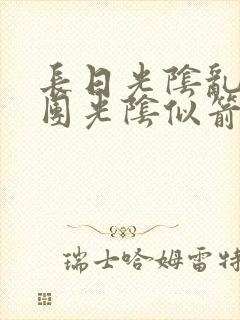 長日光陰亂
團光陰似箭
瑞士哈姆雷特